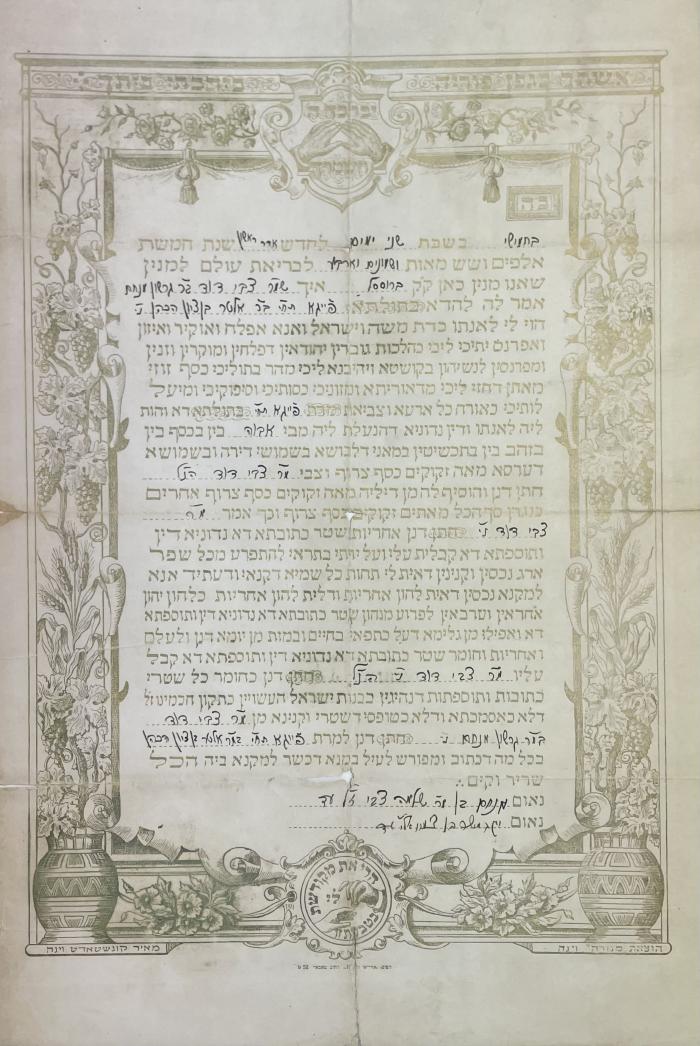 אשתך כגפן פוריה בירכתי ביתך
ברכה
ב"ה
בחמישי בשבת שני ימים לחדש אדר ראשון שנת חמשת
אלפים ושש מאות ושמונים וארבע לבריאת עולם למנין
שאנו מנין כאן ק"ק ברוסל איך שמ"ר צבי דוד ב"ר גרשון מנחם
אמר לה להדא בתולתא פייגא תחי' ב"ר אלטר בן ציון הכהן ני'
הוי לי לאנתו כדת משה וישראל ואנא אפלח ואוקיר ואיזון
ואפרנס יתיכי ליכי כהלכות גוברין יהודאין דפלחין ומוקרין וזנין
ומפרנסין לנשיהון בקושטא ויהיבנא ליכי מהר בתוליכי כסף זוזי
מאתן דחזי ליכי מדאוריתא ומזוניכי כסותיכי וסיפוקיכי ומיעל
לותיכי כאורח כל ארעא וצביאת מרת פייגא תחי' בתולתא דא והות
ליה לאנתו ודין נדוניא דהנעלת ליה מבי אבוה בין בכסף בין
בזהב בין בתכשיטין במאני דלבושא בשמושי דירה ובשמושא
דערסא מאה זקוקים כסף צרוף וצבי מ"ר צבי דוד הנ"ל
חתן דנן והוסיף לה מן דיליה מאה זקוקים כסף צרוף אחרים
כנגדן סך הכל מאתים זקוקים כסף צרוף וכך אמר מ"ר
צבי דוד ני' חתן דנן אחריות שטר כתובתא דא נדוניא דין
ותוספתא דא קבלית עלי ועל ירתי בתראי להתפרע מכל שפר
ארג נכסין וקנינין דאית לי תחות כל שמיא דקנאי ודעתיד אנא
למקנא נכסין דאית להון אחריות ודלית להון אחריות כלהון יהון
אחראין וערבאין לפרוע מנהון שטר כתובתא דא נדוניא דין ותוספתא
דא ואפילו מן גלימא דעל כתפאי בחיים ובמות מן יומא דנן ולעלם
ואחריות וחומר שטר כתובתא דא נדוניא דין ותוספתא דא קבל
עליו מ"ר צבי דוד ני' הנ"ל חתן דנן כחומר כל שטרי
כתובות ותוספתות דנהיגין בבנות ישראל העשויין כתקון חכמינו ז"ל
דלא כאסמכתא ודלא כטופסי דשטרי וקנינא מן מ"ר צבי דוד
ב"ר גרשון מנחם ני' חתן דנן למרת פייגא תחי' ב"ר אלטר בן ציון הכהן
בכל מה דכתוב ומפורש לעיל במנא דכשר למקנא ביה הכל
שריר וקים
נאום מנחם בן מ"ר שלמה צבי ז"ל עד
נאום בן עד
הרי את מקודשת לי בטבעת זו
הוצאת מנורה וינה
מאיר קונשטאדט וינה